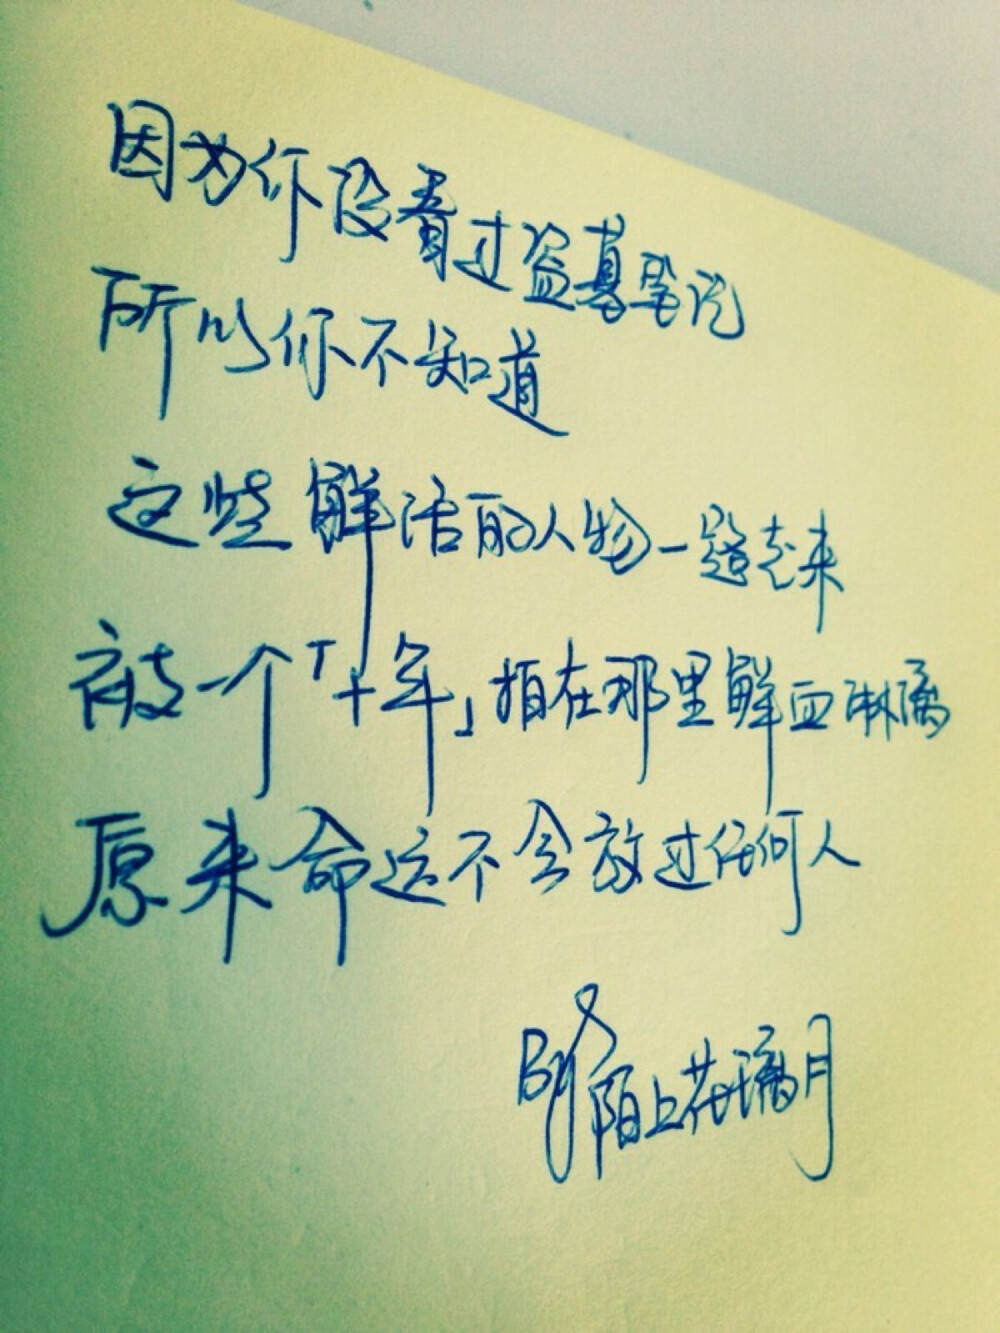 因为你没看过盗墓笔记
所以你不知道
这些鲜活的人物一路走来
被一个「十年」拍在那里鲜血淋漓
原来命运不会放过任何人
By 陌上花璃月